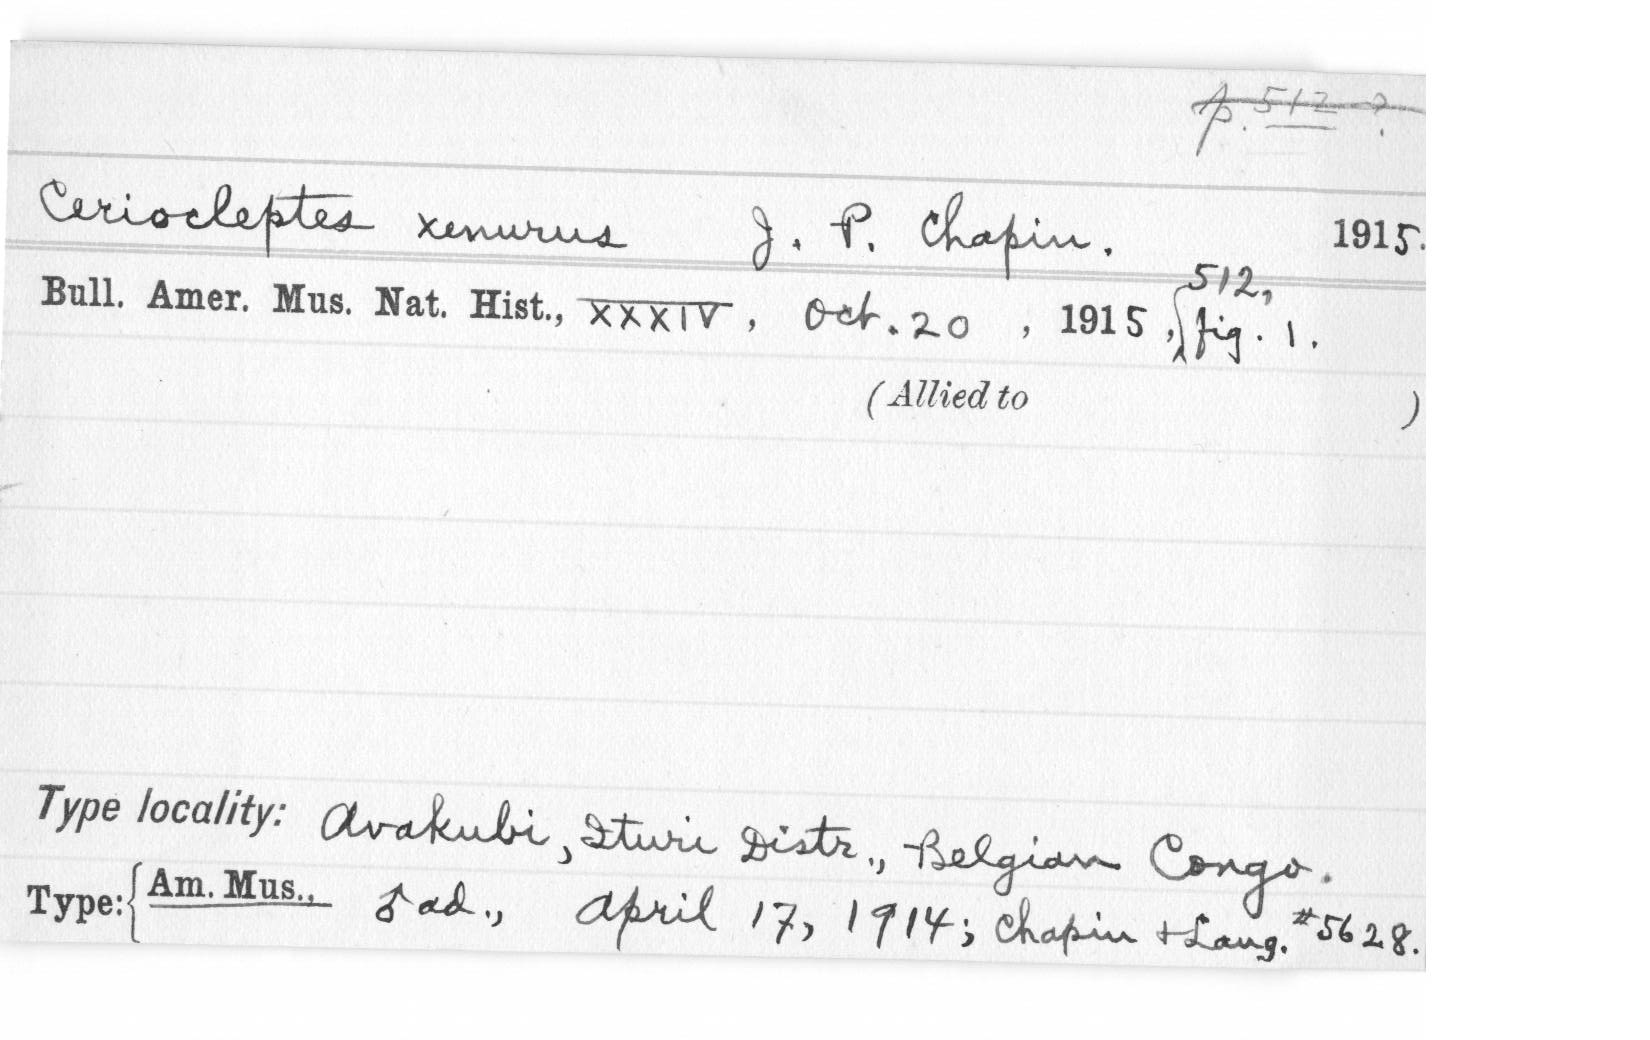 p. 512 ?
Ceriocleptes xenurus J. P. Chapin. 1915.
Bull. Amer. Mus. Nat. Hist., XXXIV, Oct. 20, 1915, 512, fig. 1.
(Allied to )
Type locality: Avakubi, Ituri Distr., Belgian Congo.
Type: { Am. Mus., ♂ ad., April 17, 1914; Chapin + Lang. #5628.